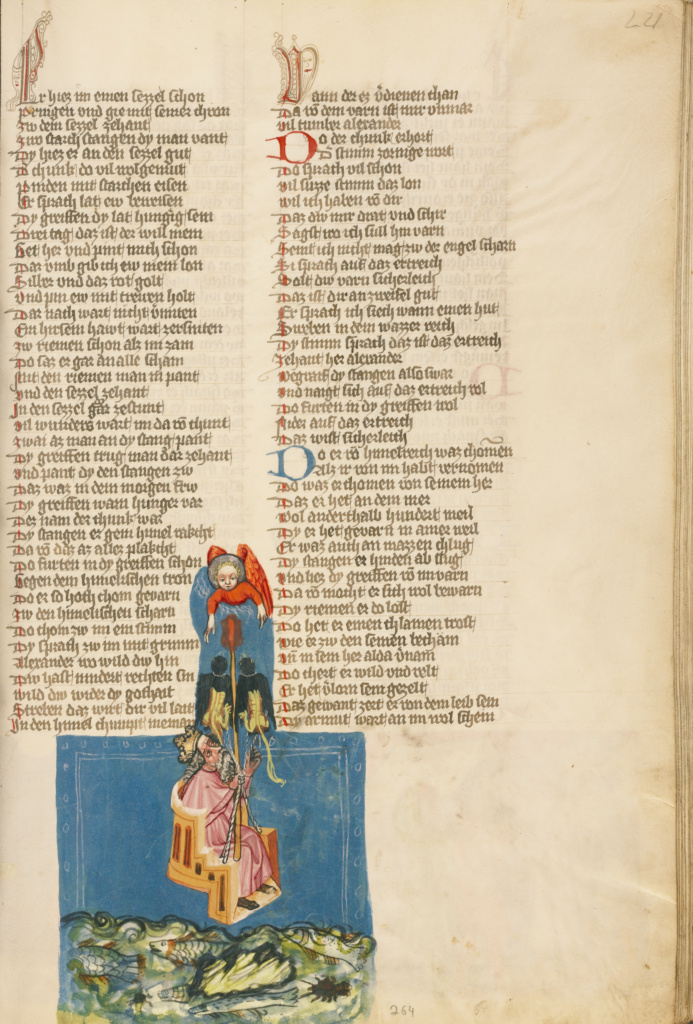 221
Er hiez im einen sezzel schon
Pringen vnd gie mit seiner chron
Zw dem sezzel zehant
Zwo starch stangen dy man vant
Dy hiez er an den sezzel gut
D chunk do vil wolgemut
Pinden mit starchen eisen
Er sprach lat ew beweisen
Dy greiffen dy lat hungig sein
Drei tag daz ist der will mein
Get her vnd pint mich schon
Dar vmb gib ich ew mein lon
Silber vnd daz rot golt
Vnd pin ew mit trewen holt
Dar nach wart nicht vmiten
Ein hirsein hawt wart zersniten
Zw riemen schon als im zam
Do saz er gar an alle scham
Mit den riemen man in pant
Vnd den sezzel zehant
In den sezzel gar zestunt
Vil wunders wart im da vo chunt
Zwai az man an dy stang pant
Dy greiffen trug man dar zehant
Vnd pant dy den stangen zw
Daz waz in dem morgen frw
Dy greiffen warn hunger var
Der nam der chunk war
Dy stangen er gein himel rakcht
Da vo diz az allez plakcht
Do furten in dy greiffen schon
Gegen dem himelischen tron
Do er so hoch chom gevarn
Zw den himelischen scharn
Do chom zw im ein stimm
Dy sprach zw im mit grimm
Alexander wo wild dw hin
Dw hast nindert rechten sin
Wild dw wider dy gothait
Streben daz wirt dir vil lait
In den himel chumpt nieman
Wann der ez v̄dienen chan
Da vō dem varn ist mir vnmar
Vil tumber alexander
Do der chunk erhort
Di stimm zornige wort
Do sprach vil schon
Vil suzze stimm daz lon
Wil ich haben vō dir
Daz dw mir drat vnd schir
Sagst wo ich sull hin varn
Seint ich nicht mag zw der engel scharn
Si sprach auf daz ertreich
Solt dw varn sicherleich
Daz ist dir an zweifel gut
Er sprach ich siech wann einen hut
Sweben in dem wazzer reich
Dy stimm sprach daz ist daz ertreich
Zehant her alexander
Begraif dy stangen also swar
Vnd naigt sich auf daz ertreich wol
Do furten in dy greiffen wol
Nider auf daz ertreich
Daz wist sicherleich
Do er vō himelreich waz chomen
Alz ir von im habt vernomen
Do waz er chomen von seinem her
Daz er het an dem mer
Wol anderthalb hundert meil
Dy er het gevarn in ainer weil
Er waz auch an mazzen chlug
Dy stangen er hinden ab slug
Vnd liez dy greiffen vō im varn
Da vō mocht er sich wol bewarn
Dy riemen er do lost
Do het er einen chlainen trost
Wie er zw den seinen becham
Vn in sein her alda v̄nam
Do chert er wild vnd velt
Er het v̄lorn sein gezelt
Daz gewant zert er von dem leib sein
Dy armut wart an im wol schein
264